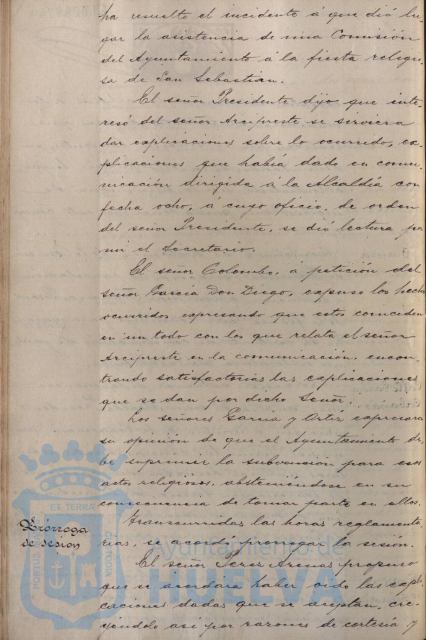 ha resuelto el incidente á que dió lu-
gar la asistencia de una Comisión
del Ayuntamiento á la fiesta religio-
sa de San Sebastian.
El señor Presidente dijo que inte-
resó del señor Arcipreste se sirviera
dar explicaciones sobre lo ocurrido, ex-
plicaciones que había dado en comu-
nicación dirigida á la Alcaldía con
fecha ocho, á cuyo oficio, de orden
del señor Presidente, se dió lectura por
mi el Secretario.
El señor Colombo, a petición del
señor García Don Diego, expuso los hechos
ocurridos expresando que estos coinciden
en un todo con los que relata el señor
Arcipreste en la comunicación, encon-
trando satisfactorias las explicaciones
que se dan por dicho Señor.
Los señores García y Ortíz expresaron
su opinión de que el Ayuntamiento de-
be suprimir la subvención para esos
actos religiosos, absteniéndose en su
consecuencia de tomar parte en ellos.
Prórroga
de sesion
Transcurridas las horas reglamenta-
rias, se acordó prorrogar la sesión.
El señor Perez Arenas propuso
que se acordara haber oido las expli-
caciones dadas que se aceptan, cre-
yéndolo así por razones de cortesía y
Ayuntamiento de
HUELVA